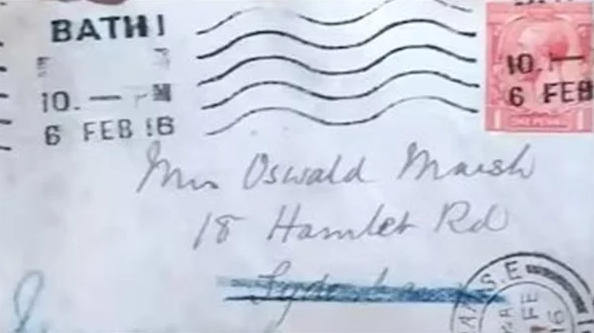 BATH
10. — PM
6 FEB 16
10.
6 FEB
Mrs Oswald Marsh
18 Hamlet Rd
Sydenham
S.E
FE
16